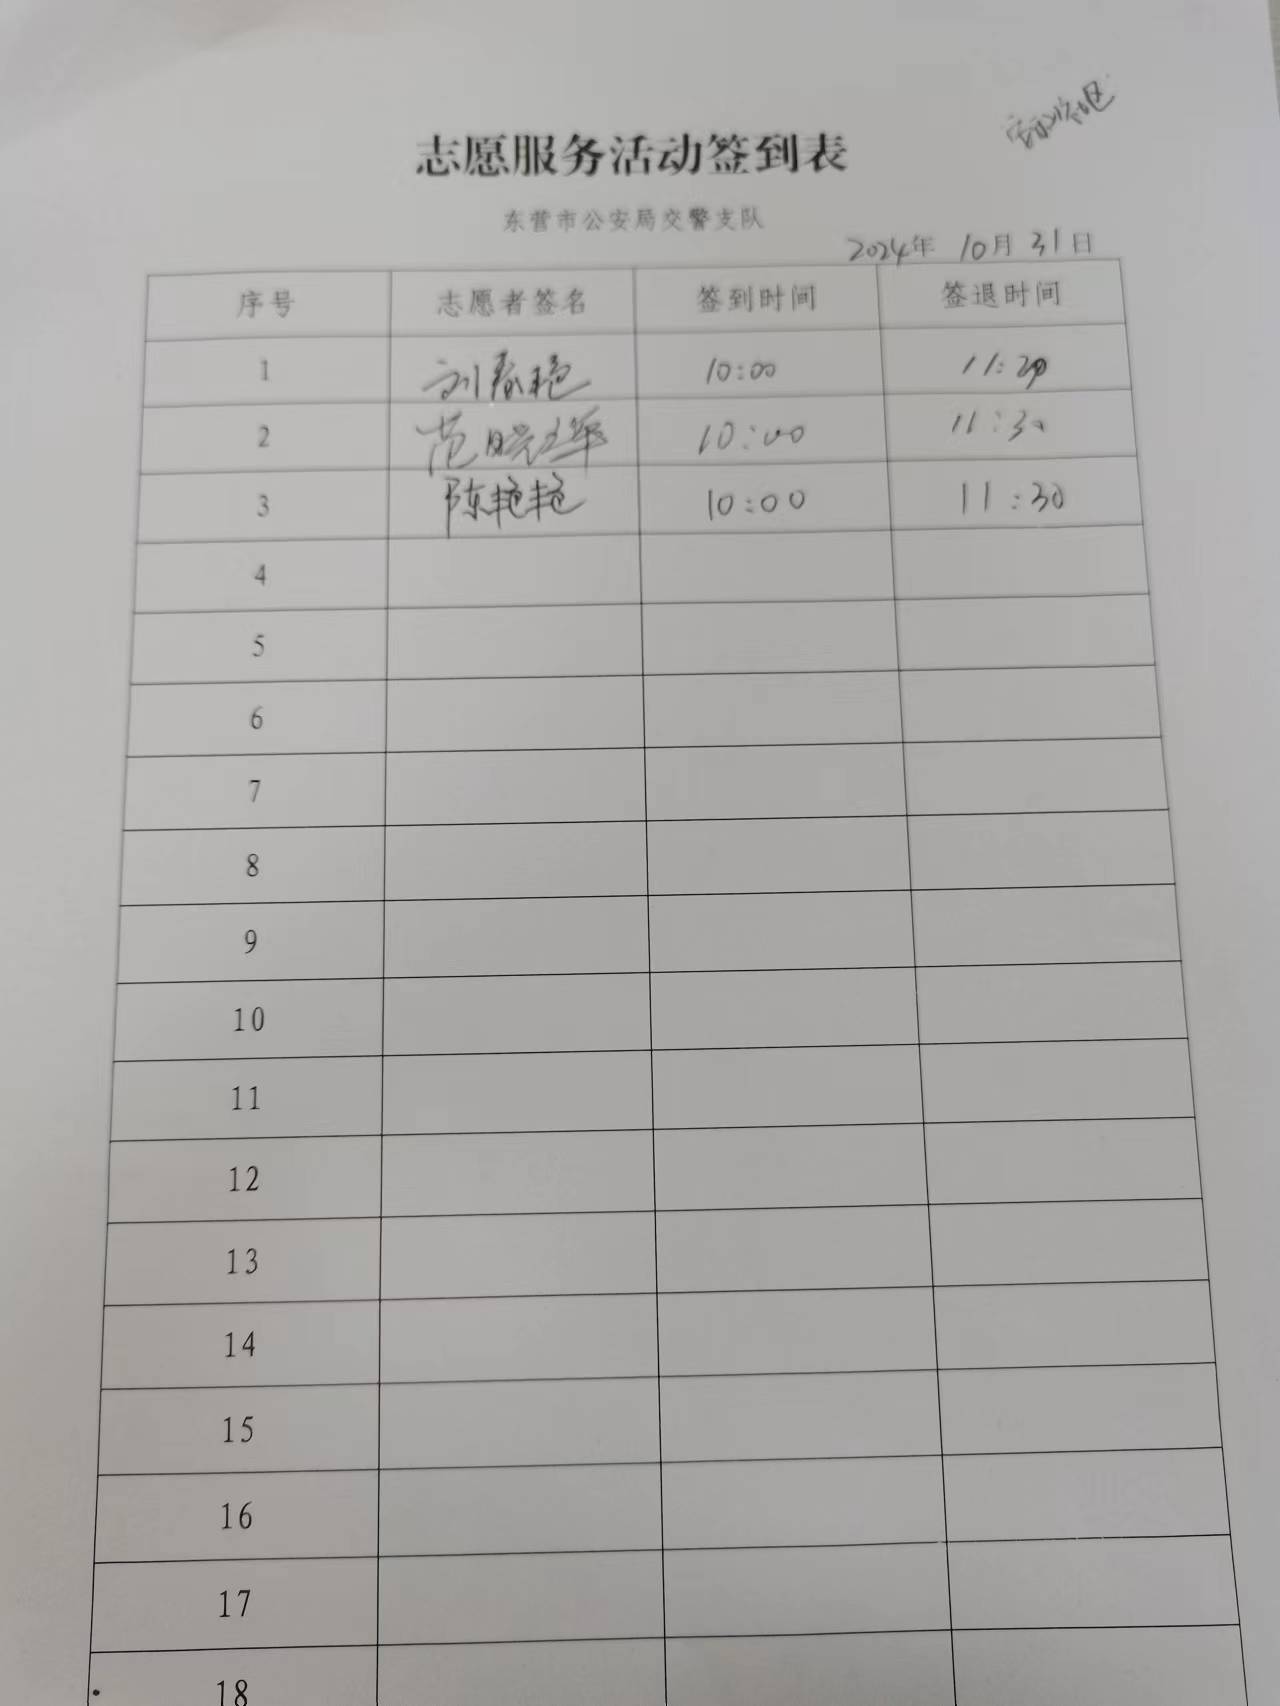 志愿服务活动签到表
东营市公安局交警支队
2024年 10月 31日
序号 志愿者签名 签到时间 签退时间
1 刘春艳 10:00 11:30
2 范晓军 10:00 11:30
3 陈艳艳 10:00 11:30
4
5
6
7
8
9
10
11
12
13
14
15
16
17
18